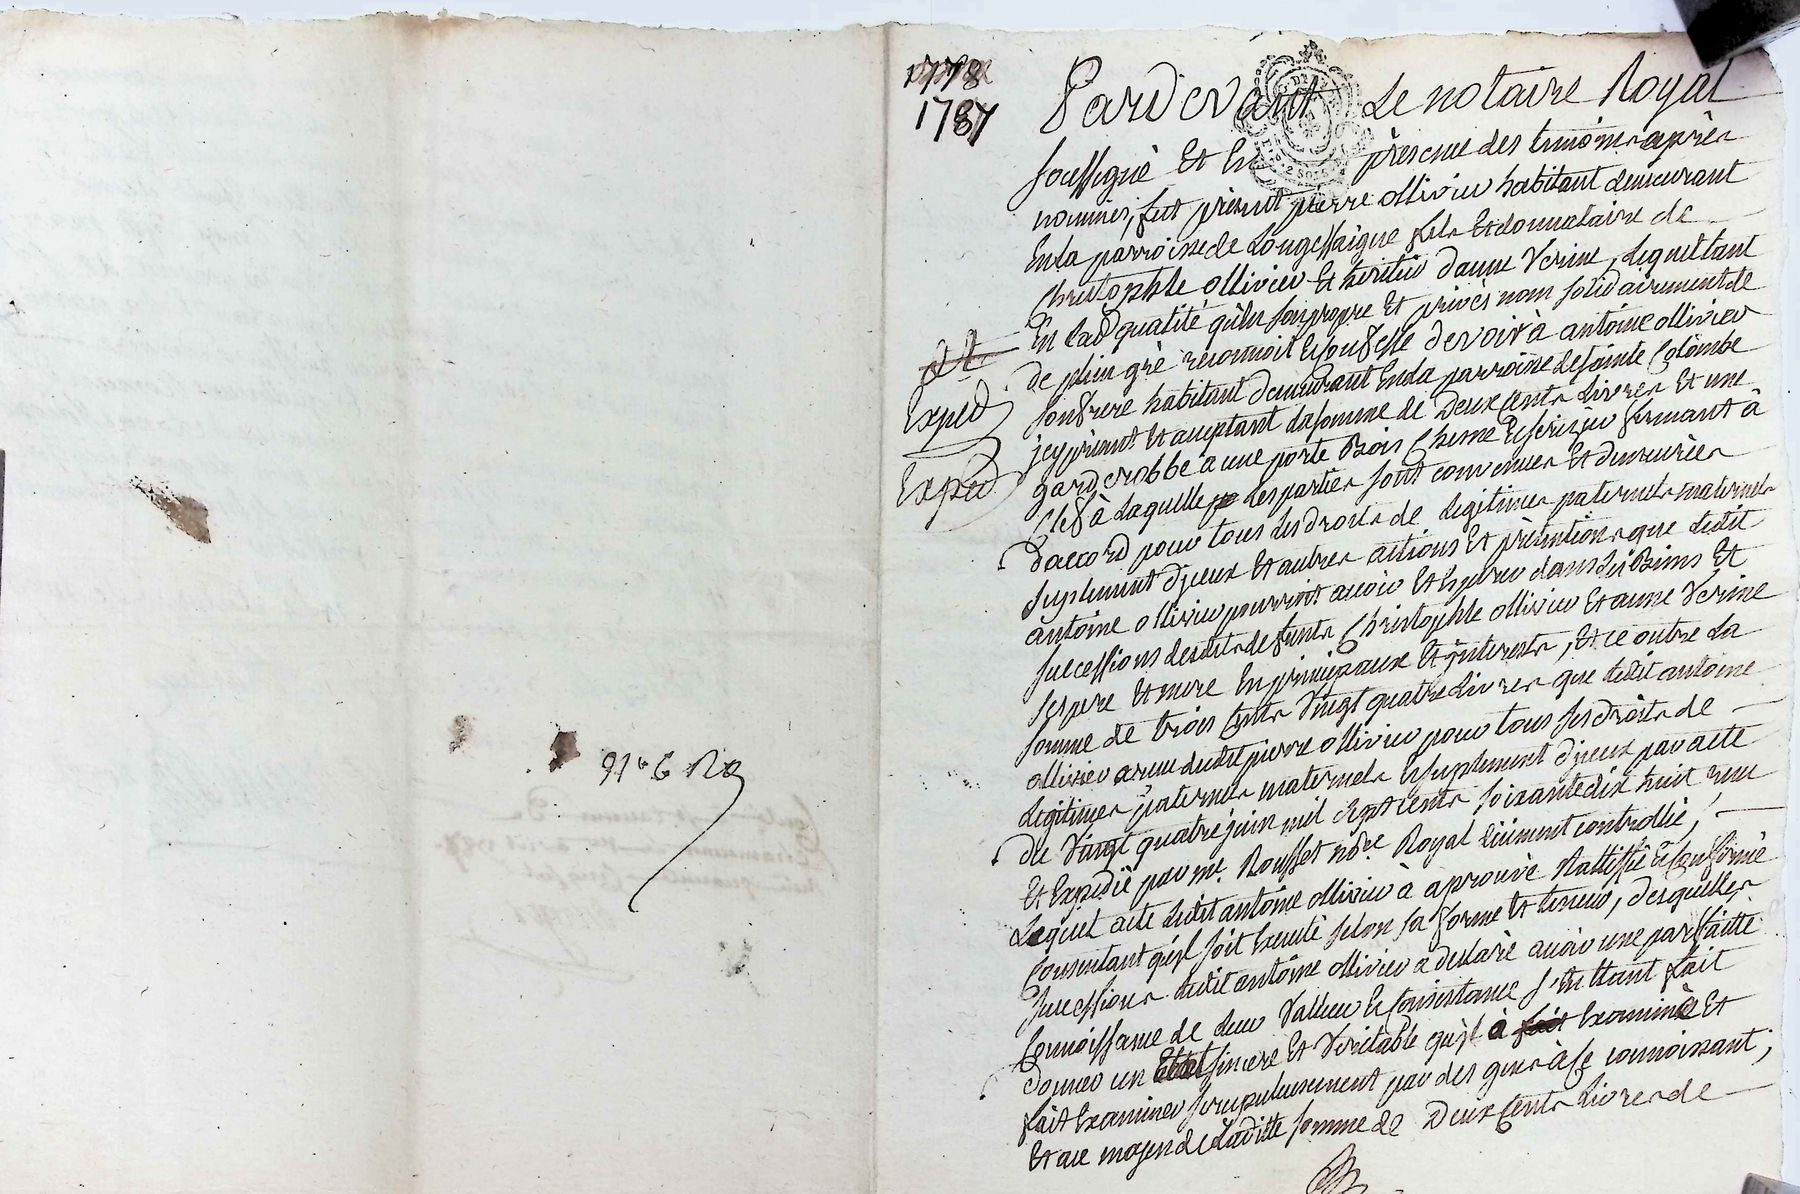 1778
1787
Pardevant Le notaire Royal
soussigné Et En présence des temoins après
nommés, fut présent pierre ollivier habitant demeurant
En la parroisse de Longessaigne fils Et donnataire de
Christophle ollivier Et héritier d'anne Verine, lequel tant
En lad qualité qu'en son propre Et privés nom solidairement de
de plein gré reconnoit Et confesse devoir à antoine ollivier
son frere habitant demeurant En la parroisse de sainte Colombe
icy présent Et acceptant la somme de Deux Cents Livres Et une
garderobbe à une porte Bois Chesne Et serisier fermant à
Clef à laquelle les parties sont convenues Et demeurées
d'accord pour tous les droits de legitimes paternels maternels
suplement d'yceux Et autres actions Et prétentions que ledit
antoine ollivier pourroit avoir Et Espérer dans les Biens Et
successions desdits defunts Christophle ollivier Et anne Verine
ses pere Et mere En principaux Et interests, Et ce outre La
somme de trois Cents Vingt quatre Livres que ledit antoine
ollivier a reçu dudit pierre ollivier pour tous ses droits de
legitimes paternels maternels Et suplement d'yceux par acte
du Vingt quatre juin mil sept cents soixante dix huit reçu
Et Expedié par me. Rousset nore. Royal duement controllé,
Lequel acte ledit antoine ollivier à aprouvé Rattiffié Et confirmé
Consentant qu'il soit Executé selon sa forme Et teneur, desquelles
successions ledit antoine ollivier a déclaré avoir une parfaitte
Connoissance de leur Valleur Et Consistance s'en Etant fait
donner un Etat sincere Et Veritable qu'il à fait Examiné Et
fait Examiner scrupuleusement par des gens à ce connoissant,
Et au moyen de Laditte somme de Deux Cents Livres de
Exped
Exped